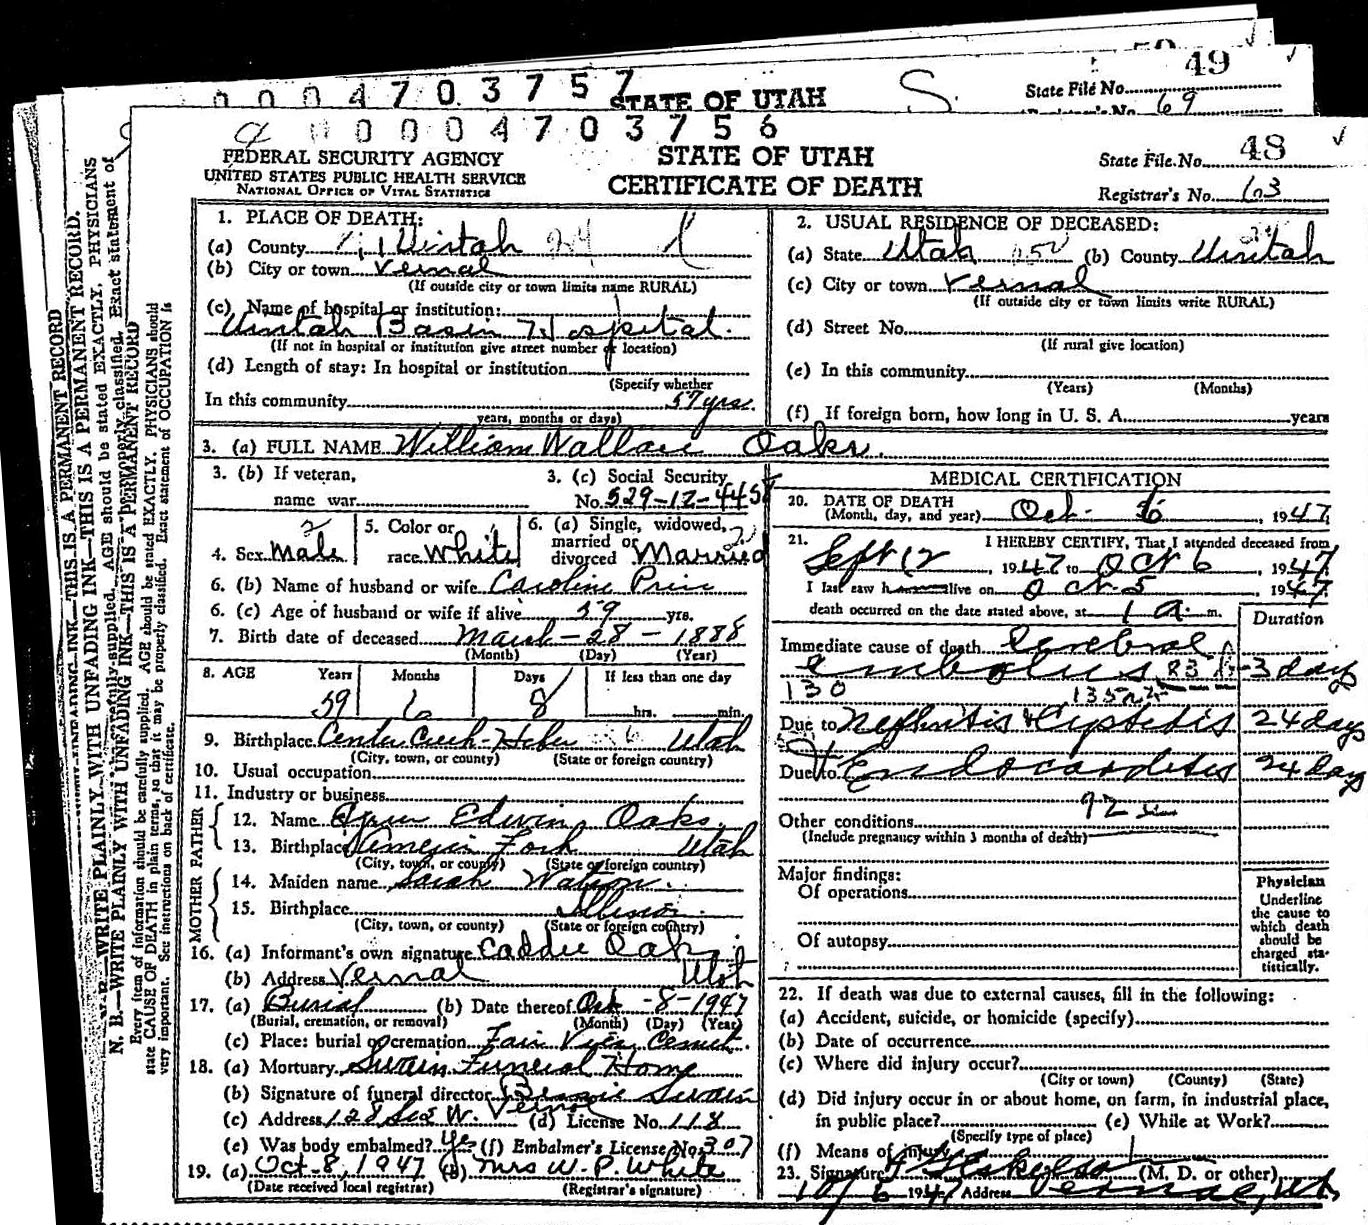 0 0 0 4 7 0 3 7 5 7
STATE OF UTAH
S.
49
State File No.
69
0 0 0 0 4 7 0 3 7 5 6
48
FEDERAL SECURITY AGENCY
UNITED STATES PUBLIC HEALTH SERVICE
NATIONAL OFFICE OF VITAL STATISTICS
STATE OF UTAH
CERTIFICATE OF DEATH
State File No. 48
Registrar's No. 63
1. PLACE OF DEATH:
(a) County Uintah 24
(b) City or town Vernal
(If outside city or town limits name RURAL)
(c) Name of hospital or institution:
Uintah Basin Hospital.
(If not in hospital or institution give street number or location)
(d) Length of stay: In hospital or institution
(Specify whether
In this community 57 yrs.
years, months or days)
2. USUAL RESIDENCE OF DECEASED:
(a) State Utah (b) County Uintah
(c) City or town Vernal
(If outside city or town limits write RURAL)
(d) Street No.
(If rural give location)
(e) In this community
(Years) (Months)
(f) If foreign born, how long in U. S. A. years
3. (a) FULL NAME William Wallace Oaks.
3. (b) If veteran,
name war
3. (c) Social Security
No. 529-12-4458
4. Sex Male
5. Color or
race White
6. (a) Single, widowed,
married or
divorced Married
6. (b) Name of husband or wife Caroline Price
6. (c) Age of husband or wife if alive 59 yrs.
7. Birth date of deceased March - 28 - 1888
(Month) (Day) (Year)
8. AGE Years Months Days If less than one day
59 6 8 hrs. min.
9. Birthplace Center Creek - Heber Utah
(City, town, or county) (State or foreign country)
10. Usual occupation
11. Industry or business
FATHER
12. Name Edwin Oaks.
13. Birthplace American Fork Utah
(City, town, or county) (State or foreign country)
MOTHER
14. Maiden name Sarah Watson.
15. Birthplace Illinois.
(City, town, or county) (State or foreign country)
16. (a) Informant's own signature Caddie Oaks
(b) Address Vernal Utah
17. (a) Burial (b) Date thereof Oct - 8 - 1947
(Burial, cremation, or removal) (Month) (Day) (Year)
(c) Place: burial or cremation Fair View Cemet.
18. (a) Mortuary Swain Funeral Home
(b) Signature of funeral director Bessie Swain
(c) Address 128 So 2 W. Vernal (d) License No. 118
(e) Was body embalmed? Yes (f) Embalmer's License No. 307
19. (a) Oct-8, 1947 (b) Mrs W. P. White
(Date received local registrar) (Registrar's signature)
MEDICAL CERTIFICATION
20. DATE OF DEATH
(Month, day, and year) Oct. 6 1947
21. I HEREBY CERTIFY, That I attended deceased from
Sept 12, 1947 to Oct 6, 1947
I last saw him alive on Oct 5 1947
death occurred on the date stated above, at 1 a. m.
Duration
Immediate cause of death Cerebral
embolus 83 3 days
130
Due to Nephritis & Cystitis 24 days
Due to Endocarditis 24 days
92
Other conditions
(Include pregnancy within 3 months of death)
Major findings:
Of operations
Of autopsy
Physician
Underline
the cause to
which death
should be
charged sta-
tistically.
22. If death was due to external causes, fill in the following:
(a) Accident, suicide, or homicide (specify)
(b) Date of occurrence
(c) Where did injury occur?
(City or town) (County) (State)
(d) Did injury occur in or about home, on farm, in industrial place,
in public place? (e) While at Work?
(Specify type of place)
(f) Means of injury
23. Signature (M. D. or other)
10/6 1947 Address Vernal, Ut.
N. B.—WRITE PLAINLY WITH UNFADING INK—THIS IS A PERMANENT RECORD
Every item of information should be carefully supplied. AGE should be stated EXACTLY. PHYSICIANS should
state CAUSE OF DEATH in plain terms, so that it may be properly classified. Exact statement of OCCUPATION is
very important. See instructions on back of certificate.